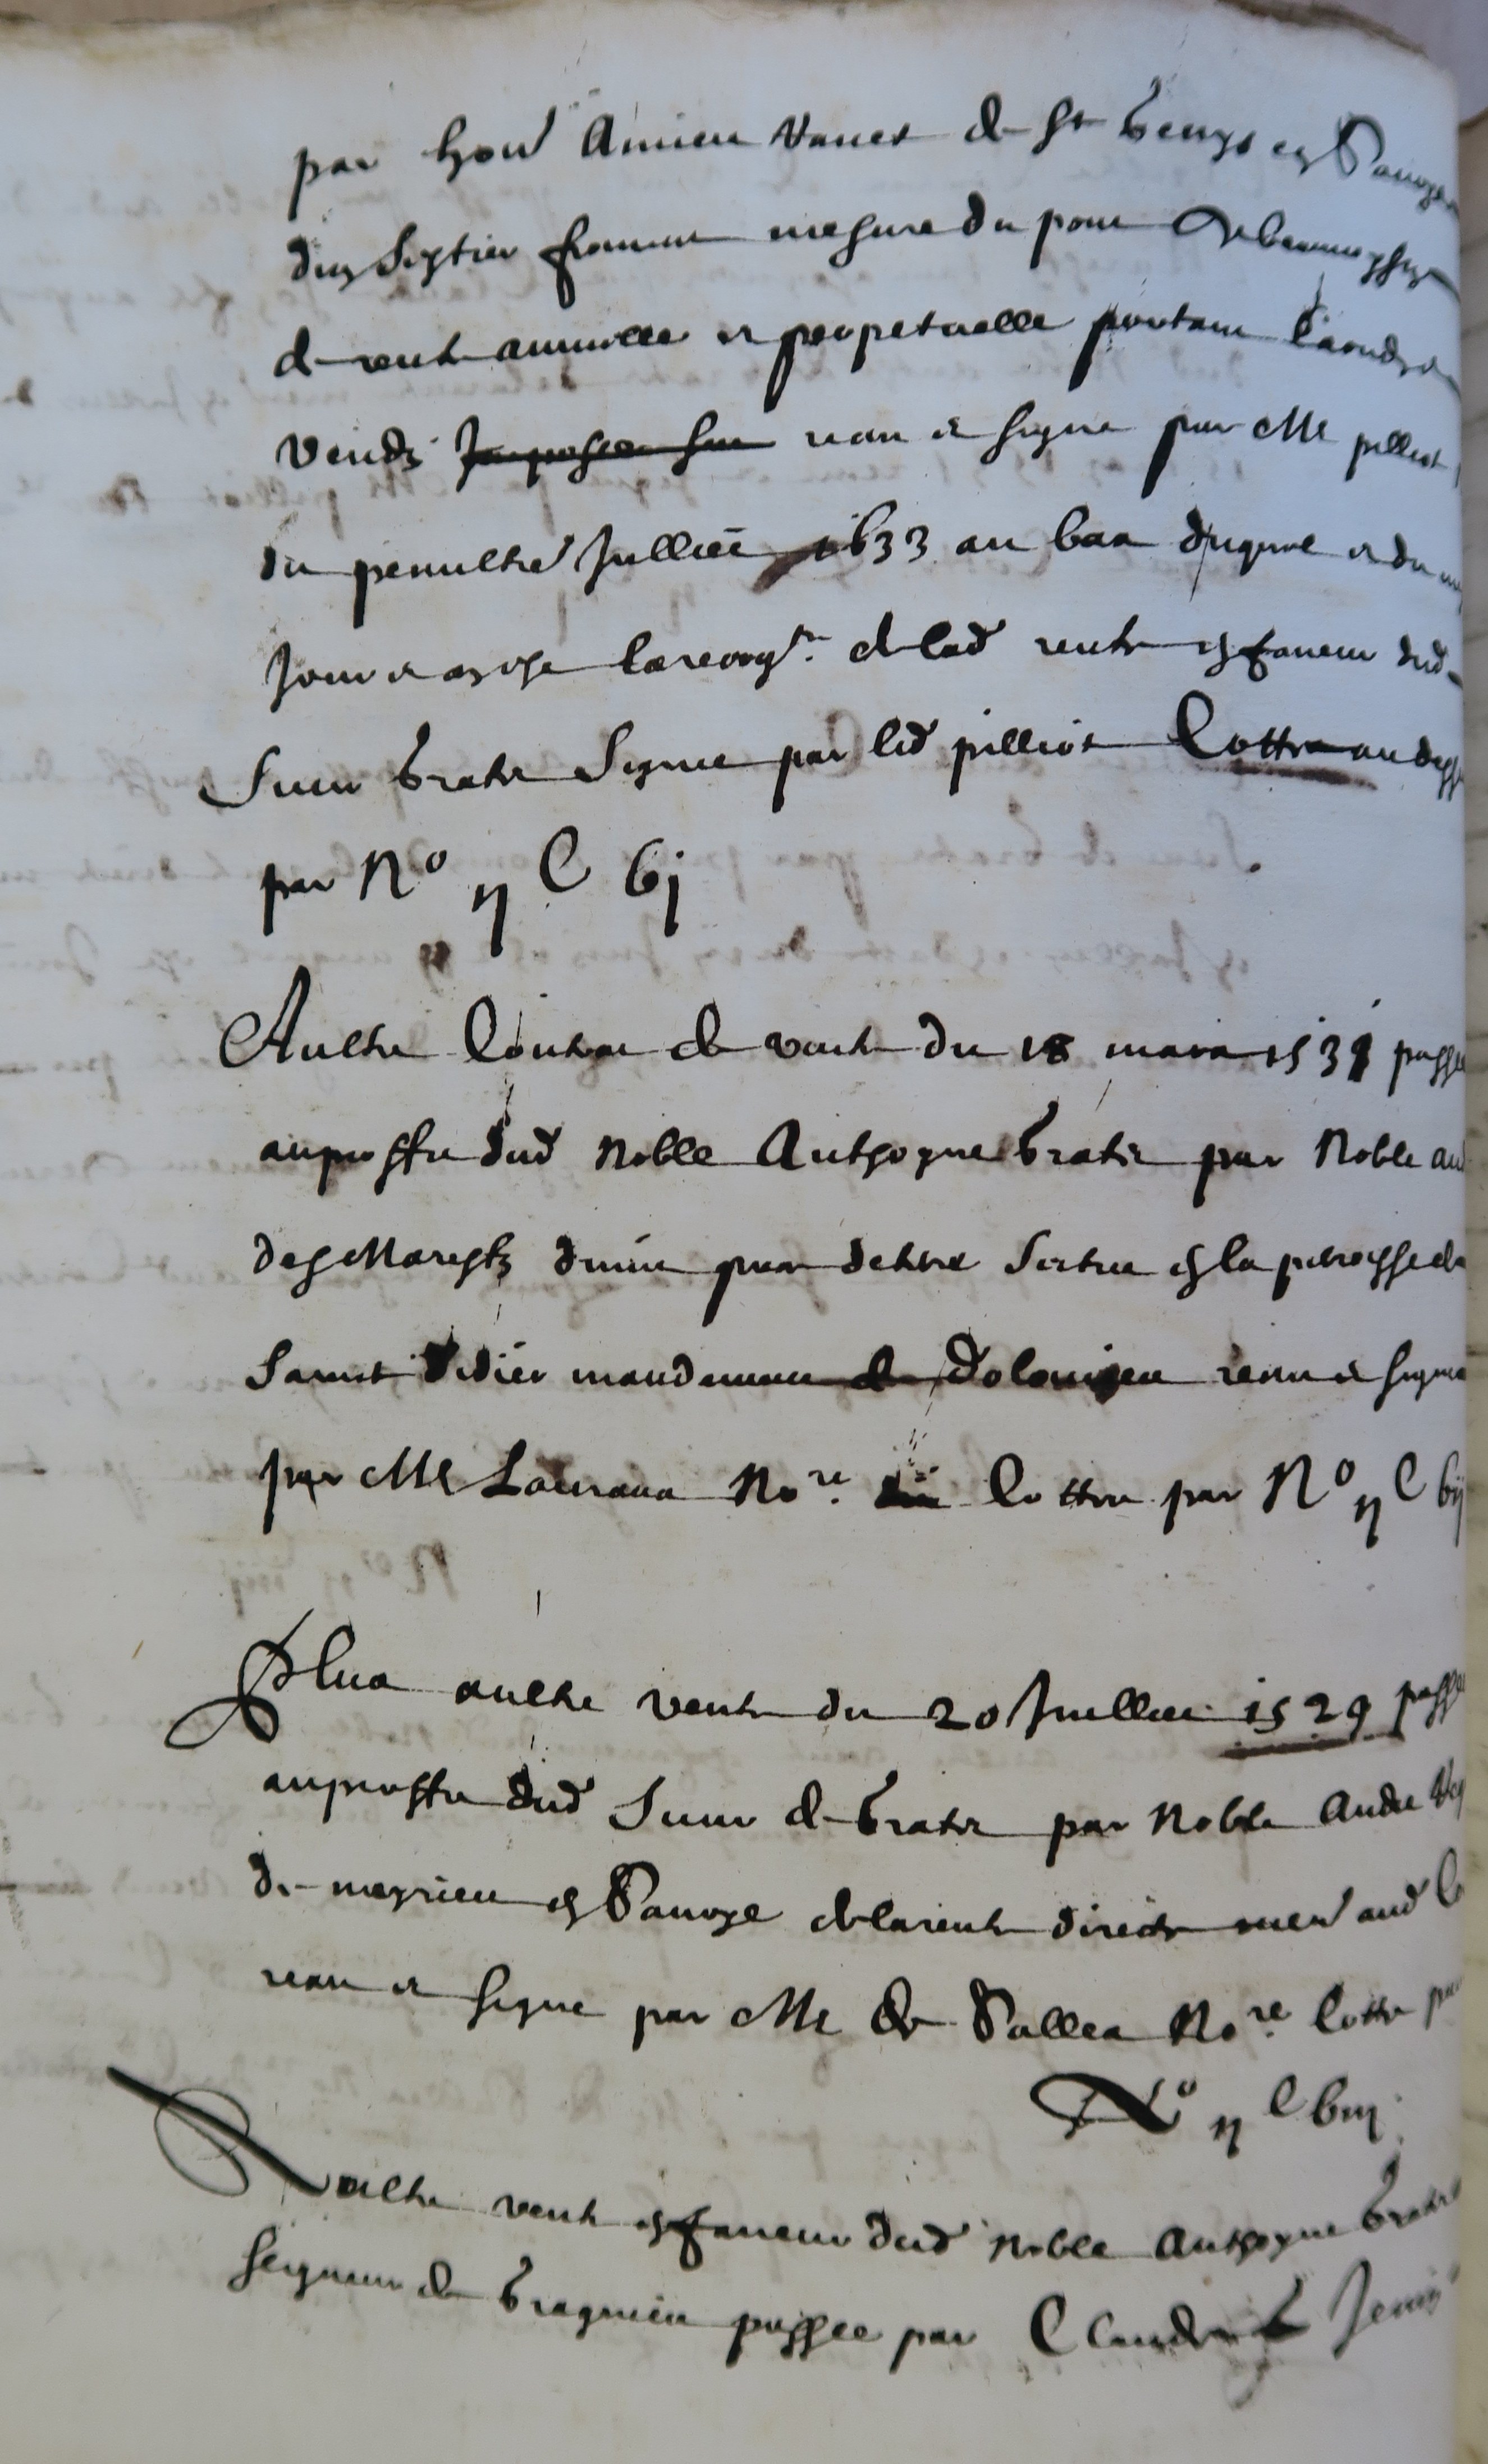 par hon^d Amieu Vanet de S^t Genys en Savoye
d'un septier froment mesure du pont de beauvoysin
de rente annuelle et perpetuelle portant laoudz et
vendz Imposee sur receu et signe par M^e pilliot
du penulthe Julliet 1633 au bas duquel et du
Jour et an est la recog^on de lad rente en faveur dud
Sieur bratie Signee par led pilliot Cotte au dess
par N° ii C vj
Aultre Contrac de vente du 18 mars 1531 passe
au proffit dud Noble Anthoyne bratie par Noble
des Marestz d'une piece de terre scitue en la parroisse de
Sainct Didier mandement de Dolomieu receu et signe
par M^e Laurans No^re Cotte par N° ii C vij
Plus aultre vente du 20 Juilliet 1529 passe
au proffit dud Sieur de bratie par Noble Andre
de meyrieu en Savoye de la rente directe aud
receu et signe par M^e de Valles No^re Cotte par
N° ii C viij
Aultre vente en faveur dud noble Anthoyne bratie
seigneur de bragnieu passee par Claude